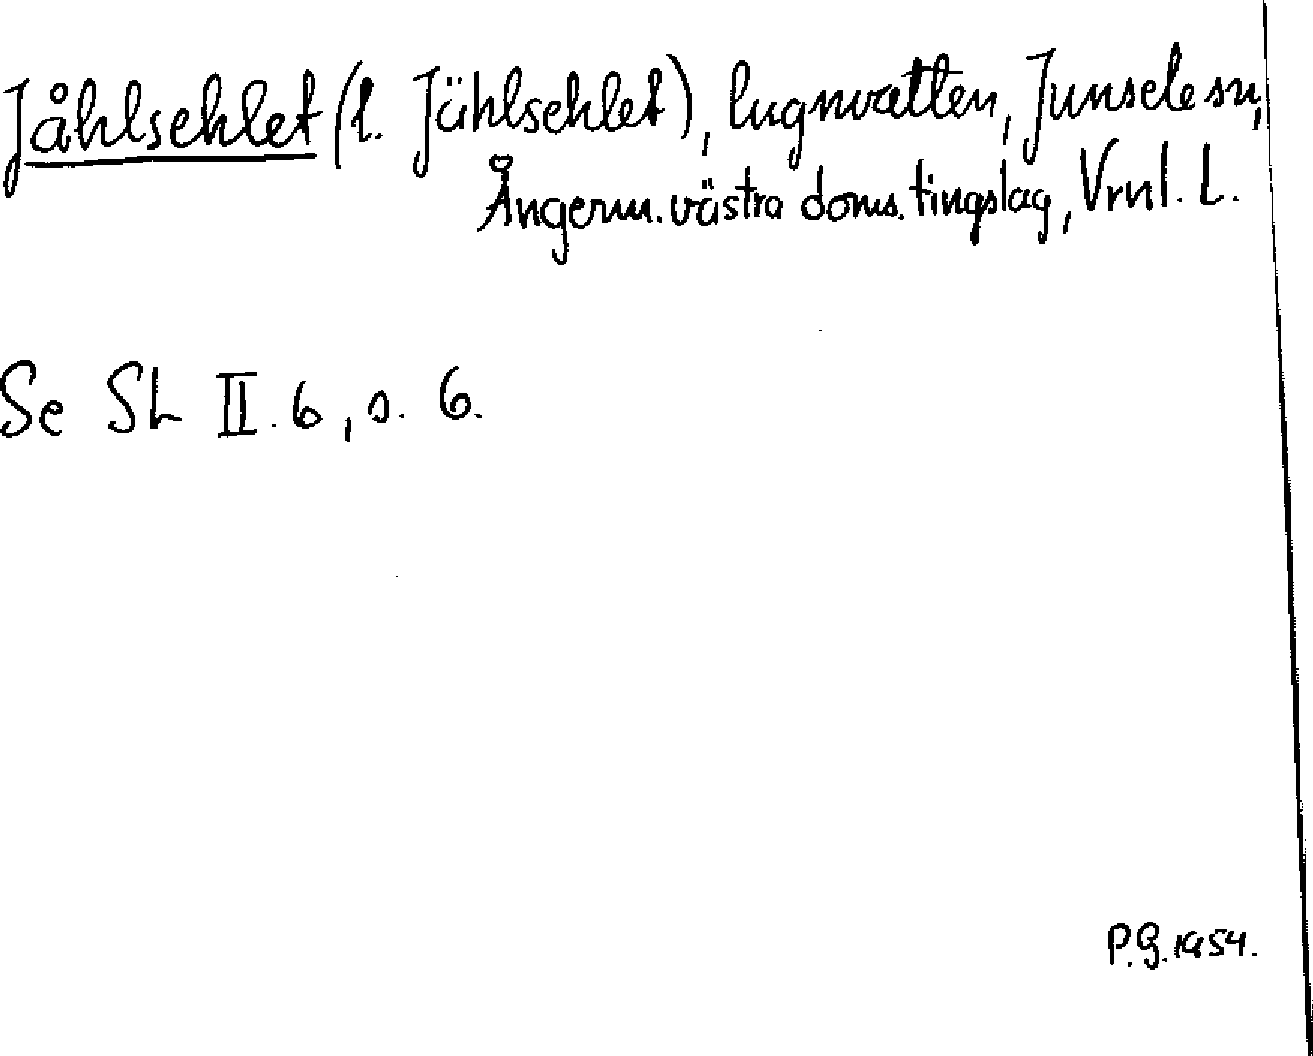 Jåhlsehlet (l. Jählsehlet), lugnvatten, Junsele sn,
Ångerm. västra doms. tingslag, Vrnl. L.
Se SL II. 6, s. 6.
P.G. 1954.